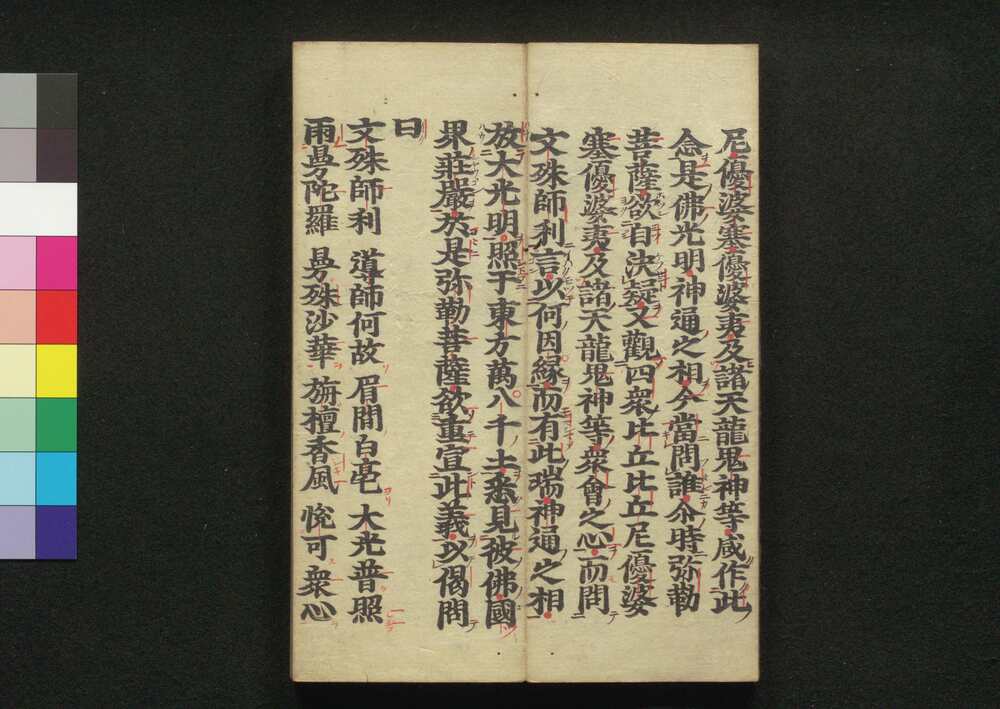 尼優婆塞優婆夷及諸天龍鬼神等咸作此
念是佛光明神通之相今當問誰尒時弥勒
菩薩欲自決疑又觀四衆比丘比丘尼優婆
塞優婆夷及諸天龍鬼神等衆會之心而問
文殊師利言以何因緣而有此瑞神通之相
放大光明照于東方萬八千土悉見彼佛國
界莊嚴於是弥勒菩薩欲重宣此義以偈問
曰
文殊師利 導師何故 眉間白毫 大光普照
雨曼陀羅 曼殊沙華 旃檀香風 悅可衆心